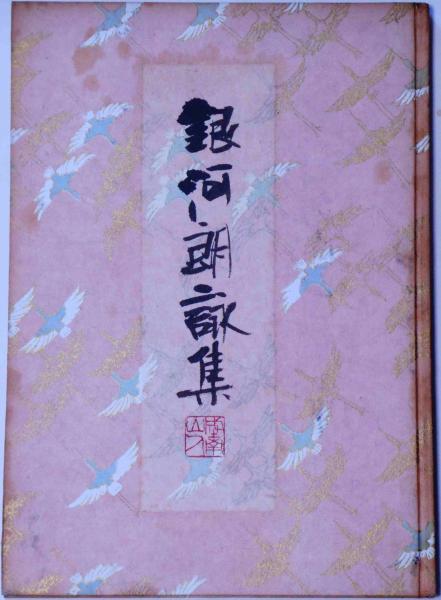 銀河朗詠集